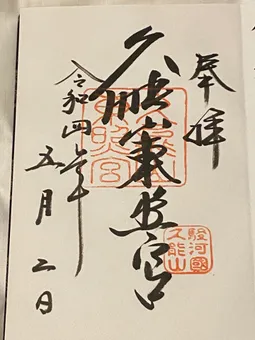 奉拝
久能山東照宮
令和四年
五月二日
駿河國
久能山